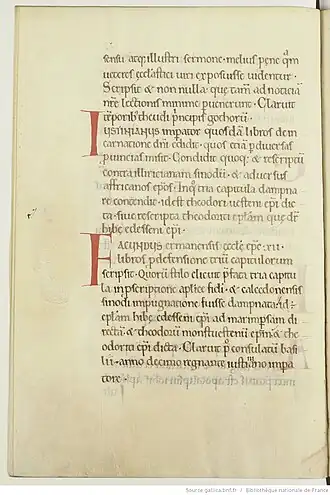 sensu atq; illustri sermone · melius pene qm
ueteres ecclastici uiri exposuisse uidentur ·
Scripsit & non nulla · que tam ad noticiā
nrē lectionis minime puenerunt · Claruit
tēporib; theudi principis gothorū ·
IUSTINIANUS impator quosdā libros de in
carnatione dnī edidit · quos etiā p diuersas
puincias misit · Condidit quoq; & rescriptū
contra illiricianam sinodū · & aduersus
affricanos epos · In q tria capitula dampna
re contendit · id est theodori epi dic
ta · siue rescripta theodoriti & eplam que dr̄
hibę edesseni epi ·
FACUNDUS ermanensis ecclę eps · xii ·
libros p defensione triū capitulorum
scripsit · Quorū stilo elicuit p̄fata tria capitu
la in pscriptione aplice fidi · & calcedonensis
sinodi impugnatione fuisse dampnata · id ·
eplam hibę edesseni epi ad mar
rectā · & theodorū epm & the
odoriti epi dicta · Claruit p consulatū basi
lii · anno decimo regnante iustiniano impa
tore ·
Source gallica.bnf.fr / Bibliothèque nationale de France